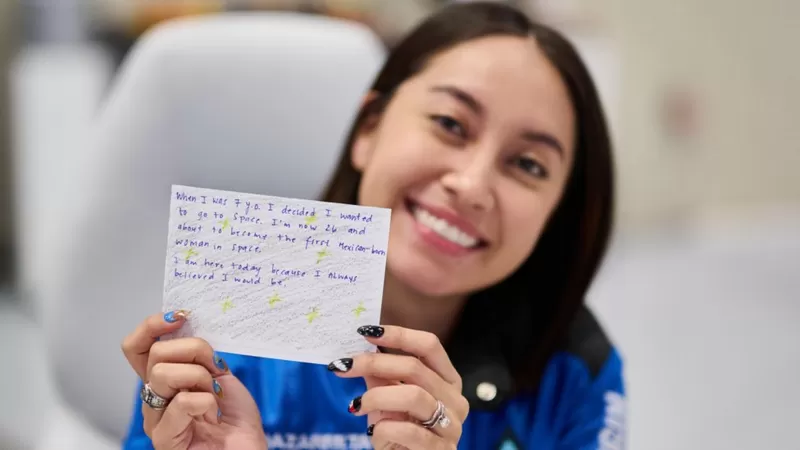 When I was 7 y.o. I decided I wanted
to go to space. I'm now 26 and
about to become the first Mexican-born
woman in space.
I am here today because I ALWAYS
believed I would be.